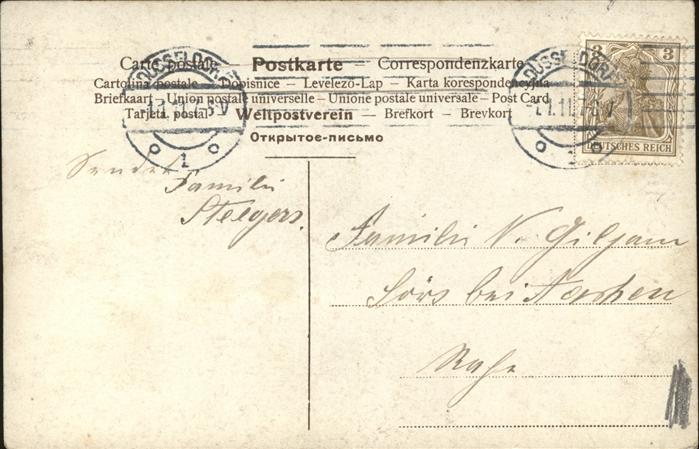 Carte postale — Postkarte — Correspondenzkarte
Cartolina postale — Dopisnice — Levelező-Lap — Karta korespondencyjna
Briefkaart — Union postale universelle — Unione postale universale — Post Card
Tarjeta postal — Weltpostverein — Brefkort — Brevkort
Открытое-письмо
DÜSSELDORF
1
DÜSSELDORF
1
3 3
DEUTSCHES REICH
Familie
Steegers.
Familie N. Giljam
Sörs bei Aachen